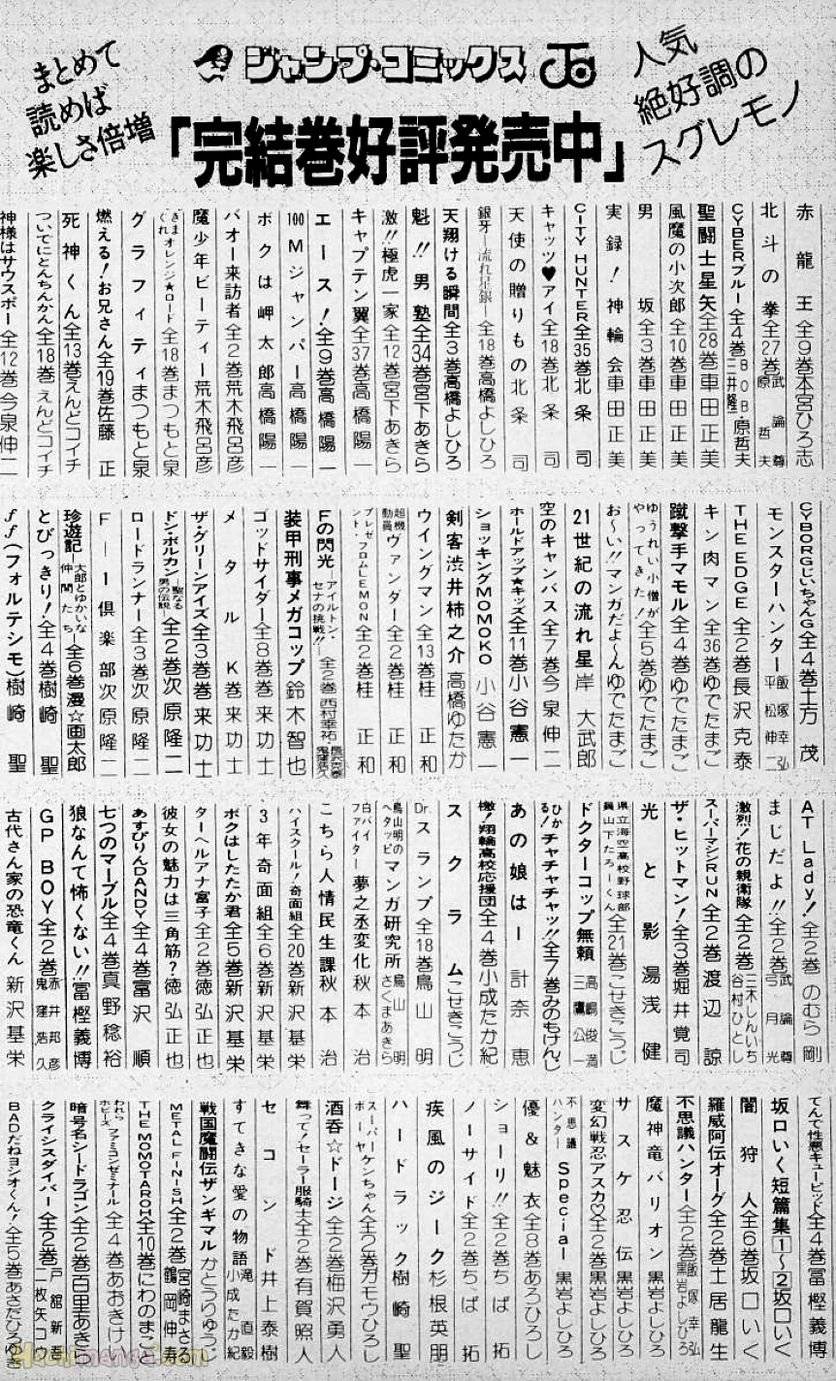 まとめて
読めば
楽しさ倍増
ジャンプ・コミックス
人気
絶好調の
スグレモノ
「完結巻好評発売中」
赤龍王全9巻本宮ひろ志
北斗の拳全27巻武論尊 原哲夫
CYBERブルー全4巻BOB・三井隆一 原哲夫
聖闘士星矢全28巻車田正美
風魔の小次郎全10巻車田正美
男坂全3巻車田正美
実録!神輪会車田正美
CITY HUNTER全35巻北条司
キャッツ♥アイ全18巻北条司
天使の贈りもの北条司
銀牙―流れ星銀―全18巻高橋よしひろ
天翔ける瞬間全3巻高橋よしひろ
魁!!男塾全34巻宮下あきら
激!!極虎一家全12巻宮下あきら
キャプテン翼全37巻高橋陽一
エース!全9巻高橋陽一
100Mジャンパー高橋陽一
ボクは岬太郎高橋陽一
バオー来訪者全2巻荒木飛呂彦
魔少年ビーティー荒木飛呂彦
きまぐれオレンジ★ロード全18巻まつもと泉
グラフィティまつもと泉
燃える!お兄さん全19巻佐藤正
死神くん全13巻えんどコイチ
ついでにとんちんかん全18巻えんどコイチ
神様はサウスポー全12巻今泉伸二
CYBORGじいちゃんG全4巻土方茂
モンスターハンター飯塚幸弘 平松伸二
THE EDGE全2巻長沢克泰
キン肉マン全36巻ゆでたまご
蹴撃手マモル全4巻ゆでたまご
ゆうれい小僧がやってきた!全5巻ゆでたまご
お～い!!マンガだよ～んゆでたまご
21世紀の流れ星岸大武郎
空のキャンバス全7巻今泉伸二
ホールドアップ★キッズ全11巻小谷憲一
ショッキングMOMOKO小谷憲一
剣客渋井柿之介高橋ゆたか
ウイングマン全13巻桂正和
超機動員ヴァンダー全2巻桂正和
プレゼント・フロムLEMON全2巻桂正和
Fの閃光―アイルトン・セナの挑戦!!―全2巻西村幸祐
装甲刑事メガコップ鈴木智也
ゴッドサイダー全8巻巻来功士
メタルK巻来功士
ザ・グリーンアイズ全3巻巻来功士
ドン・ボルカン―聖なる男の伝説―全2巻次原隆二
ロードランナー全3巻次原隆二
F―1倶楽部次原隆二
珍遊記―太郎とゆかいな仲間たち―全6巻漫☆画太郎
とびっきり!全4巻樹崎聖
ff(フォルテシモ)樹崎聖
AT Lady!全2巻のむら剛
まじだよ!!全2巻武論尊 弓月光
激烈!花の親衛隊全2巻三木しんいち 谷村ひとし
スーパーマシンRUN全2巻渡辺諒
ザ・ヒットマン!全3巻堀井覚司
光と影湯浅健
県立海空高校野球部員山下たろーくん全21巻こせきこうじ
ドクターコップ無頼高嶋俊満 三鷹公一
ひかる!チャチャチャッ!!全7巻みのもけんじ
あの娘は―計奈恵
檄!翔輪高校応援団全4巻小成たか紀
スクラムこせきこうじ
Dr.スランプ全18巻鳥山明
鳥山明のヘタッピマンガ研究所鳥山明 さくまあきら
白バイファイター夢之丞変化秋本治
こちら人情民生課秋本治
ハイスクール!奇面組全20巻新沢基栄
3年奇面組全6巻新沢基栄
ボクはしたたか君全5巻新沢基栄
ターヘルアナ富子全2巻徳弘正也
彼女の魅力は三角筋?徳弘正也
あすぴりんDANDY全4巻富沢順
七つのマーブル全4巻真野稔裕
狼なんて怖くない!!冨樫義博
GP BOY全2巻赤井邦彦 鬼窪浩久
古代さん家の恐竜くん新沢基栄
てんで性悪キューピッド全4巻冨樫義博
坂口いく短篇集1～2坂口いく
闇狩人全6巻坂口いく
羅威阿伝オーグ全2巻土居龍生
不思議ハンター全2巻飯塚幸弘 黒岩よしひろ
魔神竜バリオン黒岩よしひろ
サスケ忍伝黒岩よしひろ
変幻戦忍アスカ♡全2巻黒岩よしひろ
不思議ハンターSpecial黒岩よしひろ
優&魅衣全8巻あろひろし
ショーリ!!全2巻ちば拓
ノーサイド全2巻ちば拓
疾風のジーク杉根英明
ハードラック樹崎聖
スーパーケンちゃんボーヤ全2巻ガモウひろし
酒呑☆ドージ全2巻梅沢勇人
舞って!セーラー服騎士全2巻有賀照人
セコンド井上泰樹
すてきな愛の物語滝直毅 小成たか紀
戦国魔闘伝ザンギマルかとうりゅうじ
METAL FINISH全2巻宮崎まさる 鶴岡伸寿
THE MOMOTAROH全10巻にわのまこと
われらホビーズファミコンゼミナール全4巻あおきけい
暗号名シードラゴン全2巻百里あき
クライシスダイバー全2巻戸舘新吾 二枚矢コウ
BADだねヨシオくん!全5巻あさだひろゆき